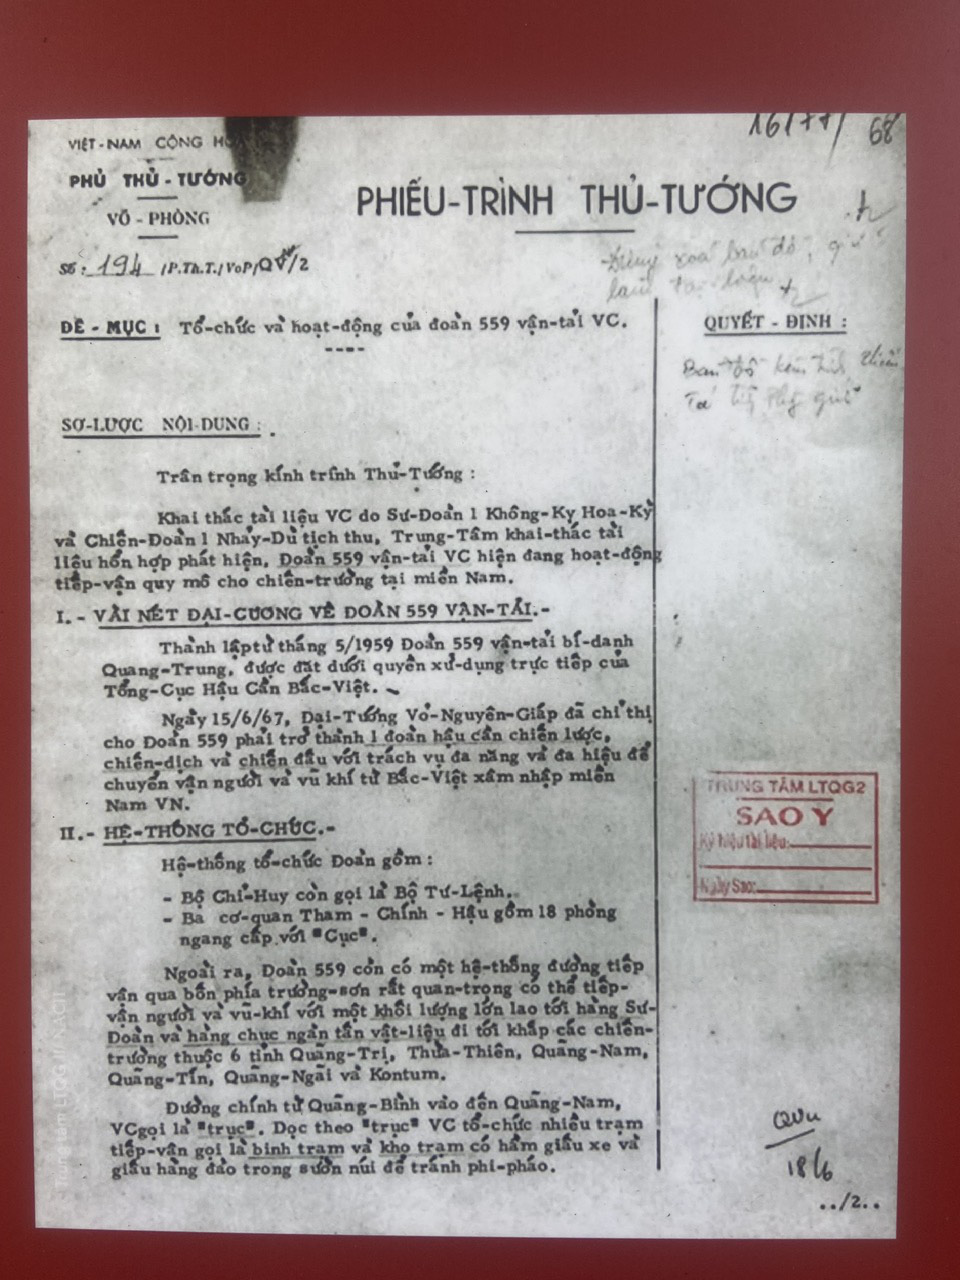 VIỆT-NAM CỘNG HOÀ
16177/ 68
PHỦ THỦ-TƯỚNG
VÕ-PHÒNG
PHIẾU-TRÌNH THỦ-TƯỚNG
Số: 194 /P.Th.T./VoP/QV/2
ĐỀ-MỤC: Tổ-chức và hoạt-động của đoàn 559 vận-tải VC.
QUYẾT-ĐỊNH:
SƠ-LƯỢC NỘI-DUNG:
Trân trọng kính trình Thủ-Tướng:
Khai thác tài liệu VC do Sư-Đoàn 1 Không-Kỵ Hoa-Kỳ
và Chiến-Đoàn 1 Nhảy-Dù tịch thu, Trung-Tâm khai-thác tài
liệu hỗn hợp phát hiện, Đoàn 559 vận-tải VC hiện đang hoạt-động
tiếp-vận quy mô cho chiến-trường tại miền Nam.
I.- VÀI NÉT ĐẠI-CƯƠNG VỀ ĐOÀN 559 VẬN-TẢI.-
Thành lập từ tháng 5/1959 Đoàn 559 vận-tải bí-danh
Quang-Trung, được đặt dưới quyền xử-dụng trực tiếp của
Tổng-Cục Hậu Cần Bắc-Việt.
Ngày 15/6/67, Đại-Tướng Võ-Nguyên-Giáp đã chỉ thị
cho Đoàn 559 phải trở thành 1 đoàn hậu cần chiến lược,
chiến-dịch và chiến đấu với trách vụ đa năng và đa hiệu để
chuyển vận người và vũ khí từ Bắc-Việt xâm nhập miền
Nam VN.
II.- HỆ-THỐNG TỔ-CHỨC.-
Hệ-thống tổ-chức Đoàn gồm:
- Bộ Chỉ-Huy còn gọi là Bộ Tư-Lệnh.
- Ba cơ-quan Tham - Chính - Hậu gồm 18 phòng
ngang cấp với "Cục".
Ngoài ra, Đoàn 559 còn có một hệ-thống đường tiếp
vận qua bốn phía trường-sơn rất quan-trọng có thể tiếp-
vận người và vũ-khí với một khối lượng lớn lao tới hàng Sư-
Đoàn và hàng chục ngàn tấn vật-liệu đi tới khắp các chiến-
trường thuộc 6 tỉnh Quãng-Trị, Thừa-Thiên, Quãng-Nam,
Quãng-Tín, Quãng-Ngãi và Kontum.
Đường chính từ Quãng-Bình vào đến Quãng-Nam,
VC gọi là "trục". Dọc theo "trục" VC tổ-chức nhiều trạm
tiếp-vận gọi là binh trạm và kho trạm có hầm giấu xe và
giấu hàng đào trong sườn núi để tránh phi-pháo.
TRUNG TÂM LTQG2
SAO Y
Ký hiệu tài liệu:
Ngày Sao:
18/6
../2..